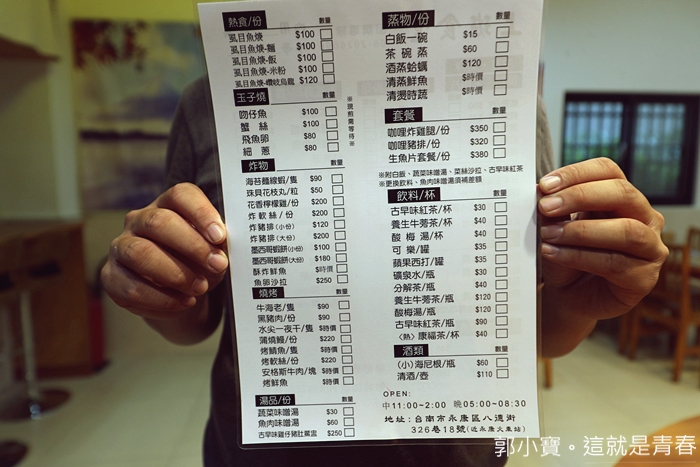 熱食/份 數量
虱目魚焿 $100
虱目魚焿-麵 $100
虱目魚焿-飯 $100
虱目魚焿-米粉 $100
虱目魚焿-讚岐烏龍 $120
玉子燒 數量
吻仔魚 $100
蟹絲 $100
飛魚卵 $80
細蔥 $80
※現煎需等待※
炸物 數量
海苔麵線蝦/隻 $90
珠貝花枝丸/粒 $50
花香檸檬雞/份 $200
炸軟絲/份 $200
炸豬排(小份) $120
炸豬排(大份) $200
墨西哥蝦餅(小份) $100
墨西哥蝦餅(大份) $180
酥炸鮮魚 $時價
魚卵沙拉 $250
燒烤 數量
牛海老/隻 $90
黑豬肉/份 $90
水尖一夜干/隻 $時價
蒲燒鰻/份 $220
烤鯖魚/隻 $時價
烤軟絲/份 $220
安格斯牛肉/塊 $時價
烤鮮魚 $時價
湯品/份 數量
蔬菜味噌湯 $30
魚肉味噌湯 $60
古早味雞仔豬肚鱉 $250
蒸物/份 數量
白飯一碗 $15
茶碗蒸 $60
酒蒸蛤蠣 $120
清蒸鮮魚 $時價
清燙時蔬 $時價
套餐 數量
咖哩炸雞腿/份 $350
咖哩豬排/份 $320
生魚片套餐/份 $380
※附白飯、蔬菜味噌湯、菜絲沙拉、古早味紅茶
※更換飲料、魚肉味噌湯須補差額
飲料/杯 數量
古早味紅茶/杯 $30
養生牛蒡茶/杯 $40
酸梅湯/杯 $40
可樂/罐 $35
蘋果西打/罐 $35
礦泉水/瓶 $30
分解茶/瓶 $40
養生牛蒡茶/瓶 $120
酸梅湯/瓶 $120
古早味紅茶/瓶 $90
(熱)康福茶/杯 $40
酒類 數量
(小)海尼根/瓶 $60
清酒/壺 $110
OPEN:
中11:00~2:00 晚05:00~08:30
地址:台南市永康區八德街
326巷18號(近永康火車站)
郭小寶。這就是青春